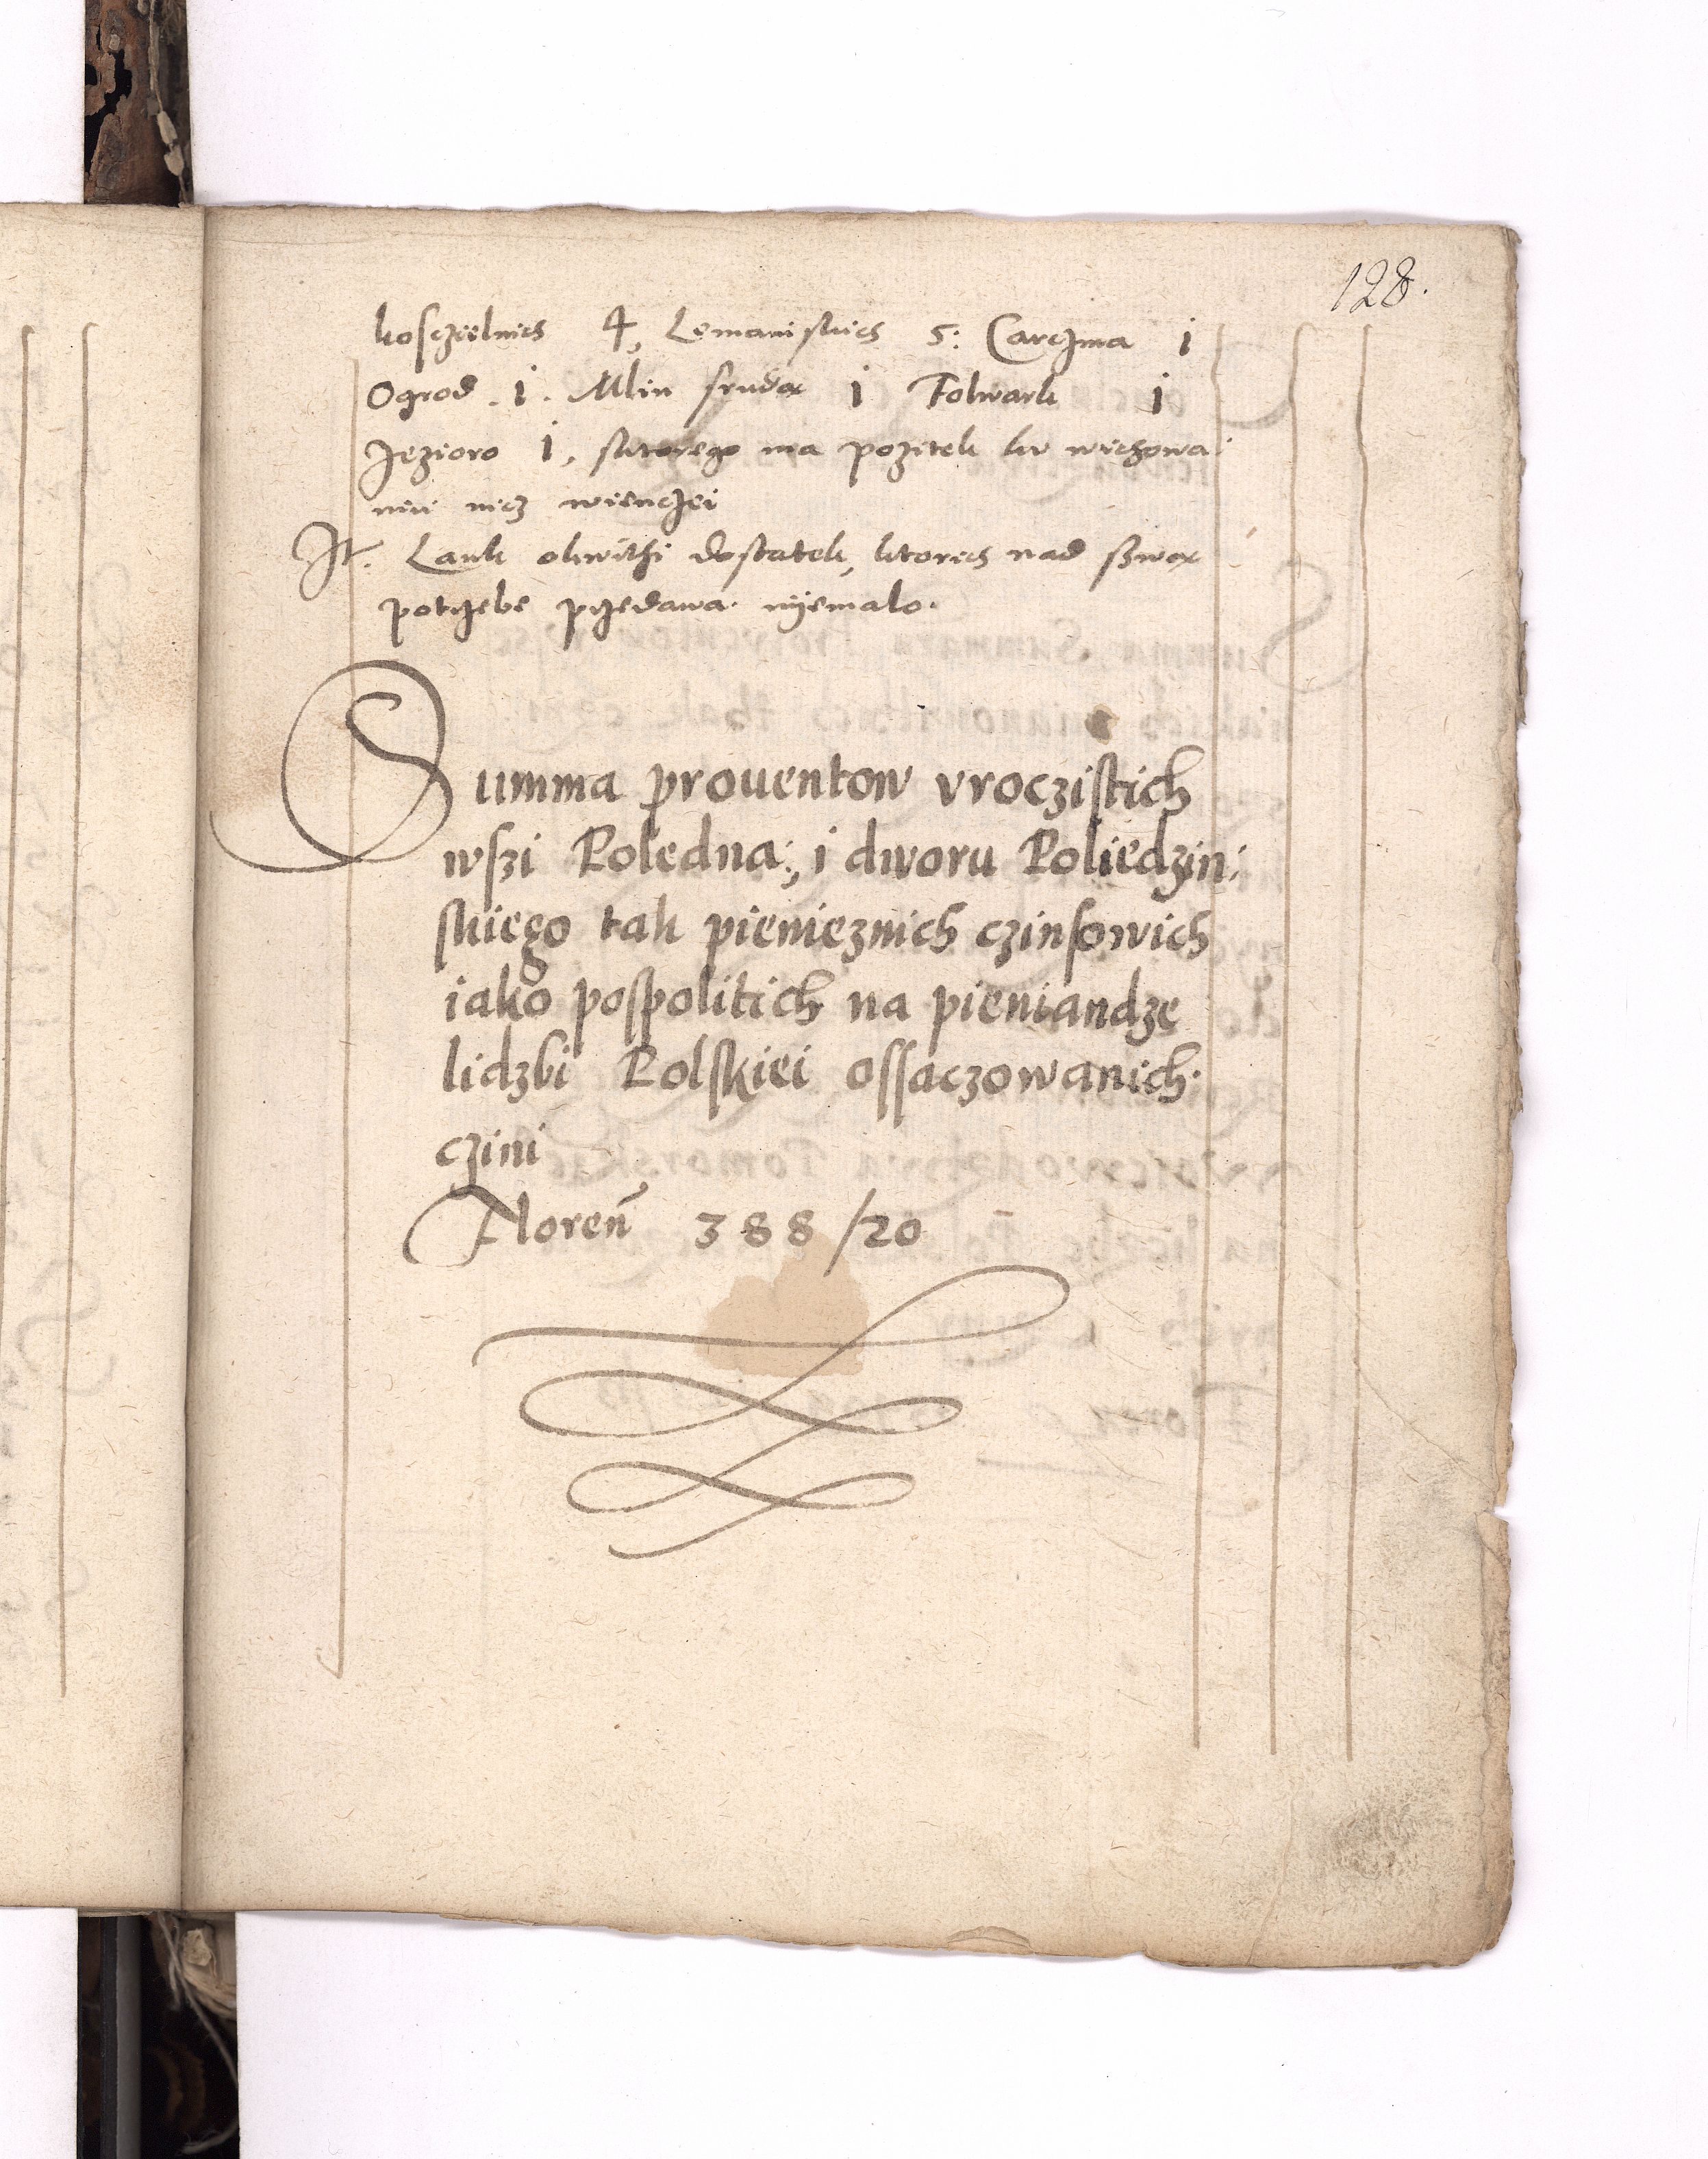 128.
kosczielnich 4, Lemaniskich 5: Carczma 1
Ogrod . 1 . Mlin 1 Folwark 1
Jezioro 1, sktorego ma pozitek kv wichowa:
niu nicz wienczei
It. Lank okwithi dostatek, ktorich nad
potrzebe przedawa. nyemalo.
Summa prouentow vroczistich
wszi Poledna:, i dworu Poliedzin:
skiego tak pienieznich czinsowich
iako pospolitich na pieniandze
lidzbi Polskiei ossaczowanich.
czini
Floren̄ 388/20